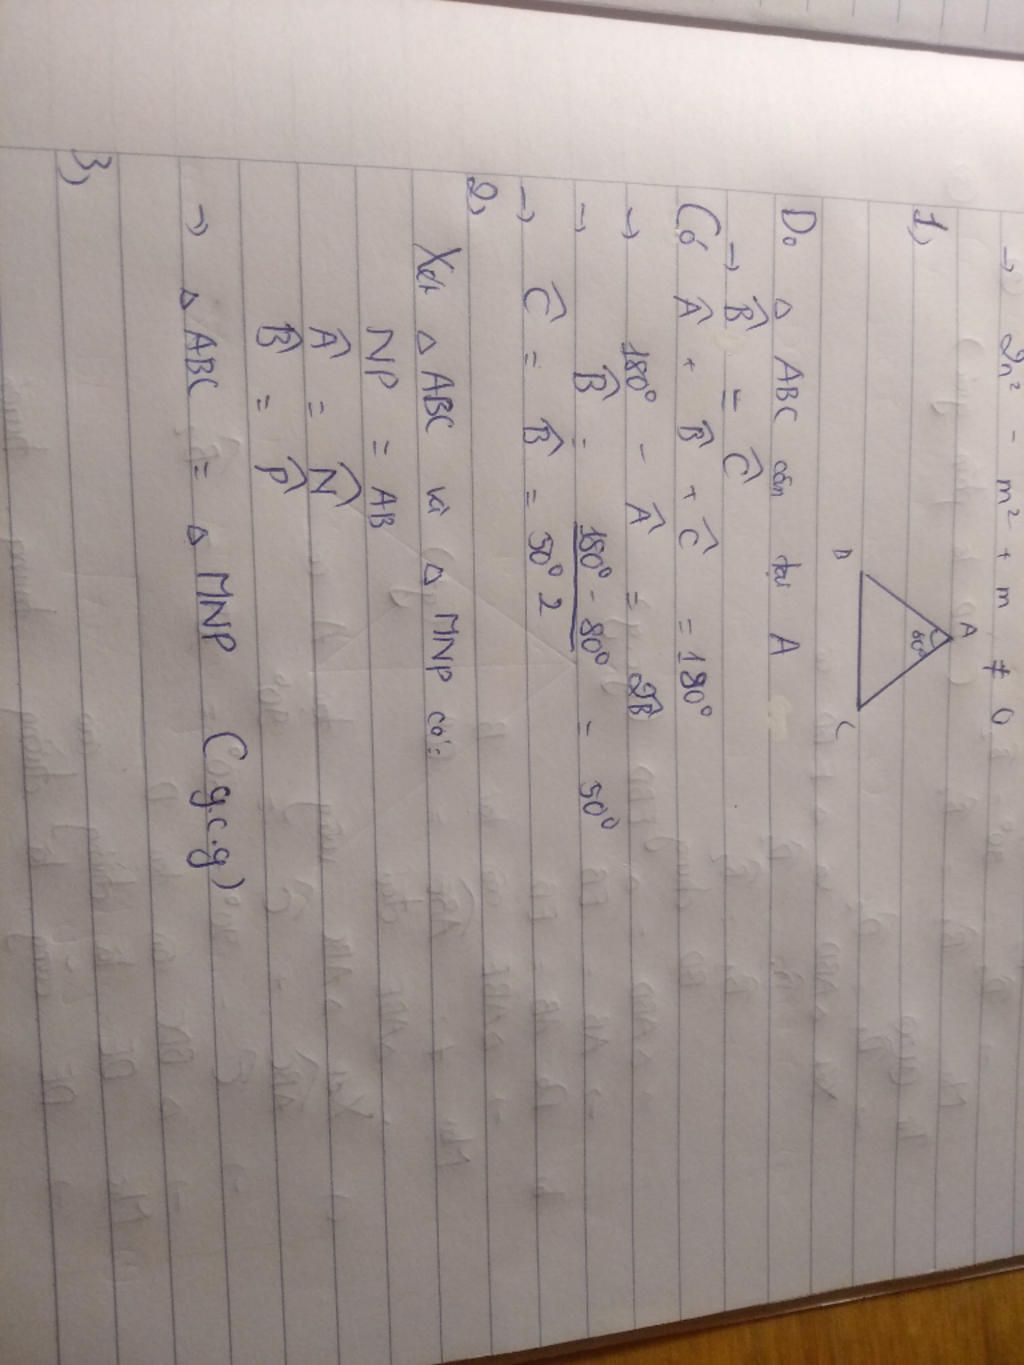 → 2n² - m² + m ≠ 0
1,
A
80°
B
C
Do △ ABC cân tại A
→ B̂ = Ĉ
Có Â + B̂ + Ĉ = 180°
→ 180° - Â = 2B̂
→ B̂ = (180° - 80°)/2 = 50°
→ Ĉ = B̂ = 50°
2,
Xét △ ABC và △ MNP có:
NP = AB
Â = N̂
B̂ = P̂
→ △ ABC = △ MNP (g.c.g)
3,